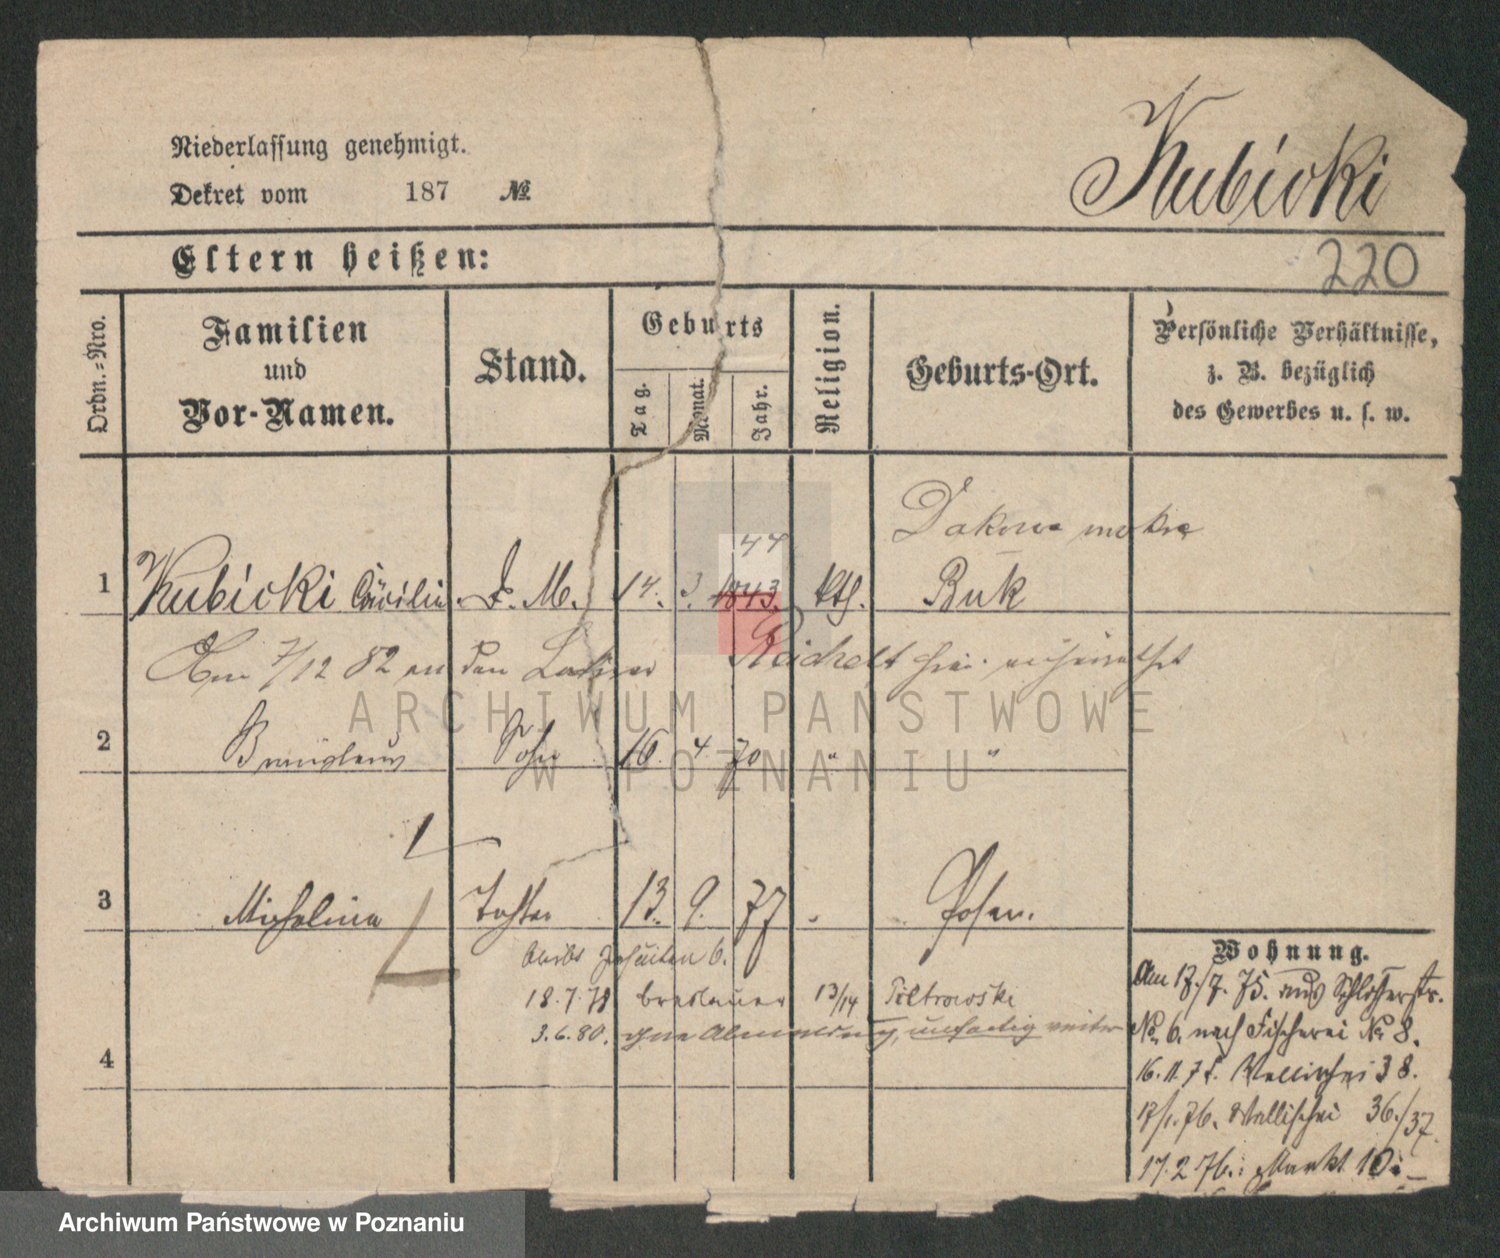 Niederlassung genehmigt.
Dekret vom 187 №
Kubicki
Eltern heißen:
220
Ordn.-Nro.
Familien
und
Vor-Namen.
Stand.
Geburts
Tag.
Monat.
Jahr.
Religion.
Geburts-Ort.
Persönliche Verhältnisse,
z. B. bezüglich
des Gewerbes u. s. w.
44
Dakowe mokre
1 Kubicki Cäcilie D. M. 14. 3. 1843. kth. Buk
Am 7/12 82 an den Reichelt hier verheirathet
2 Bronislaus Sohn 16. 4. 70 " "
3 Michalina Tochter 13. 9. 77 " Posen.
Jesuiten 6.
18.7.78 Breslauer 13/14 Piotrowski
3.6.80. ohne Abmeldung, weiter
4
Wohnung.
Am 17./7. 75. aus Schlosserstr.
No. 6. nach Fischerei No 8.
16.11.75. Wallischei 38.
17/1.76. Wallischei 36./37.
17.2.76. Markt 10
ARCHIWUM PAŃSTWOWE
W POZNANIU
Archiwum Państwowe w Poznaniu